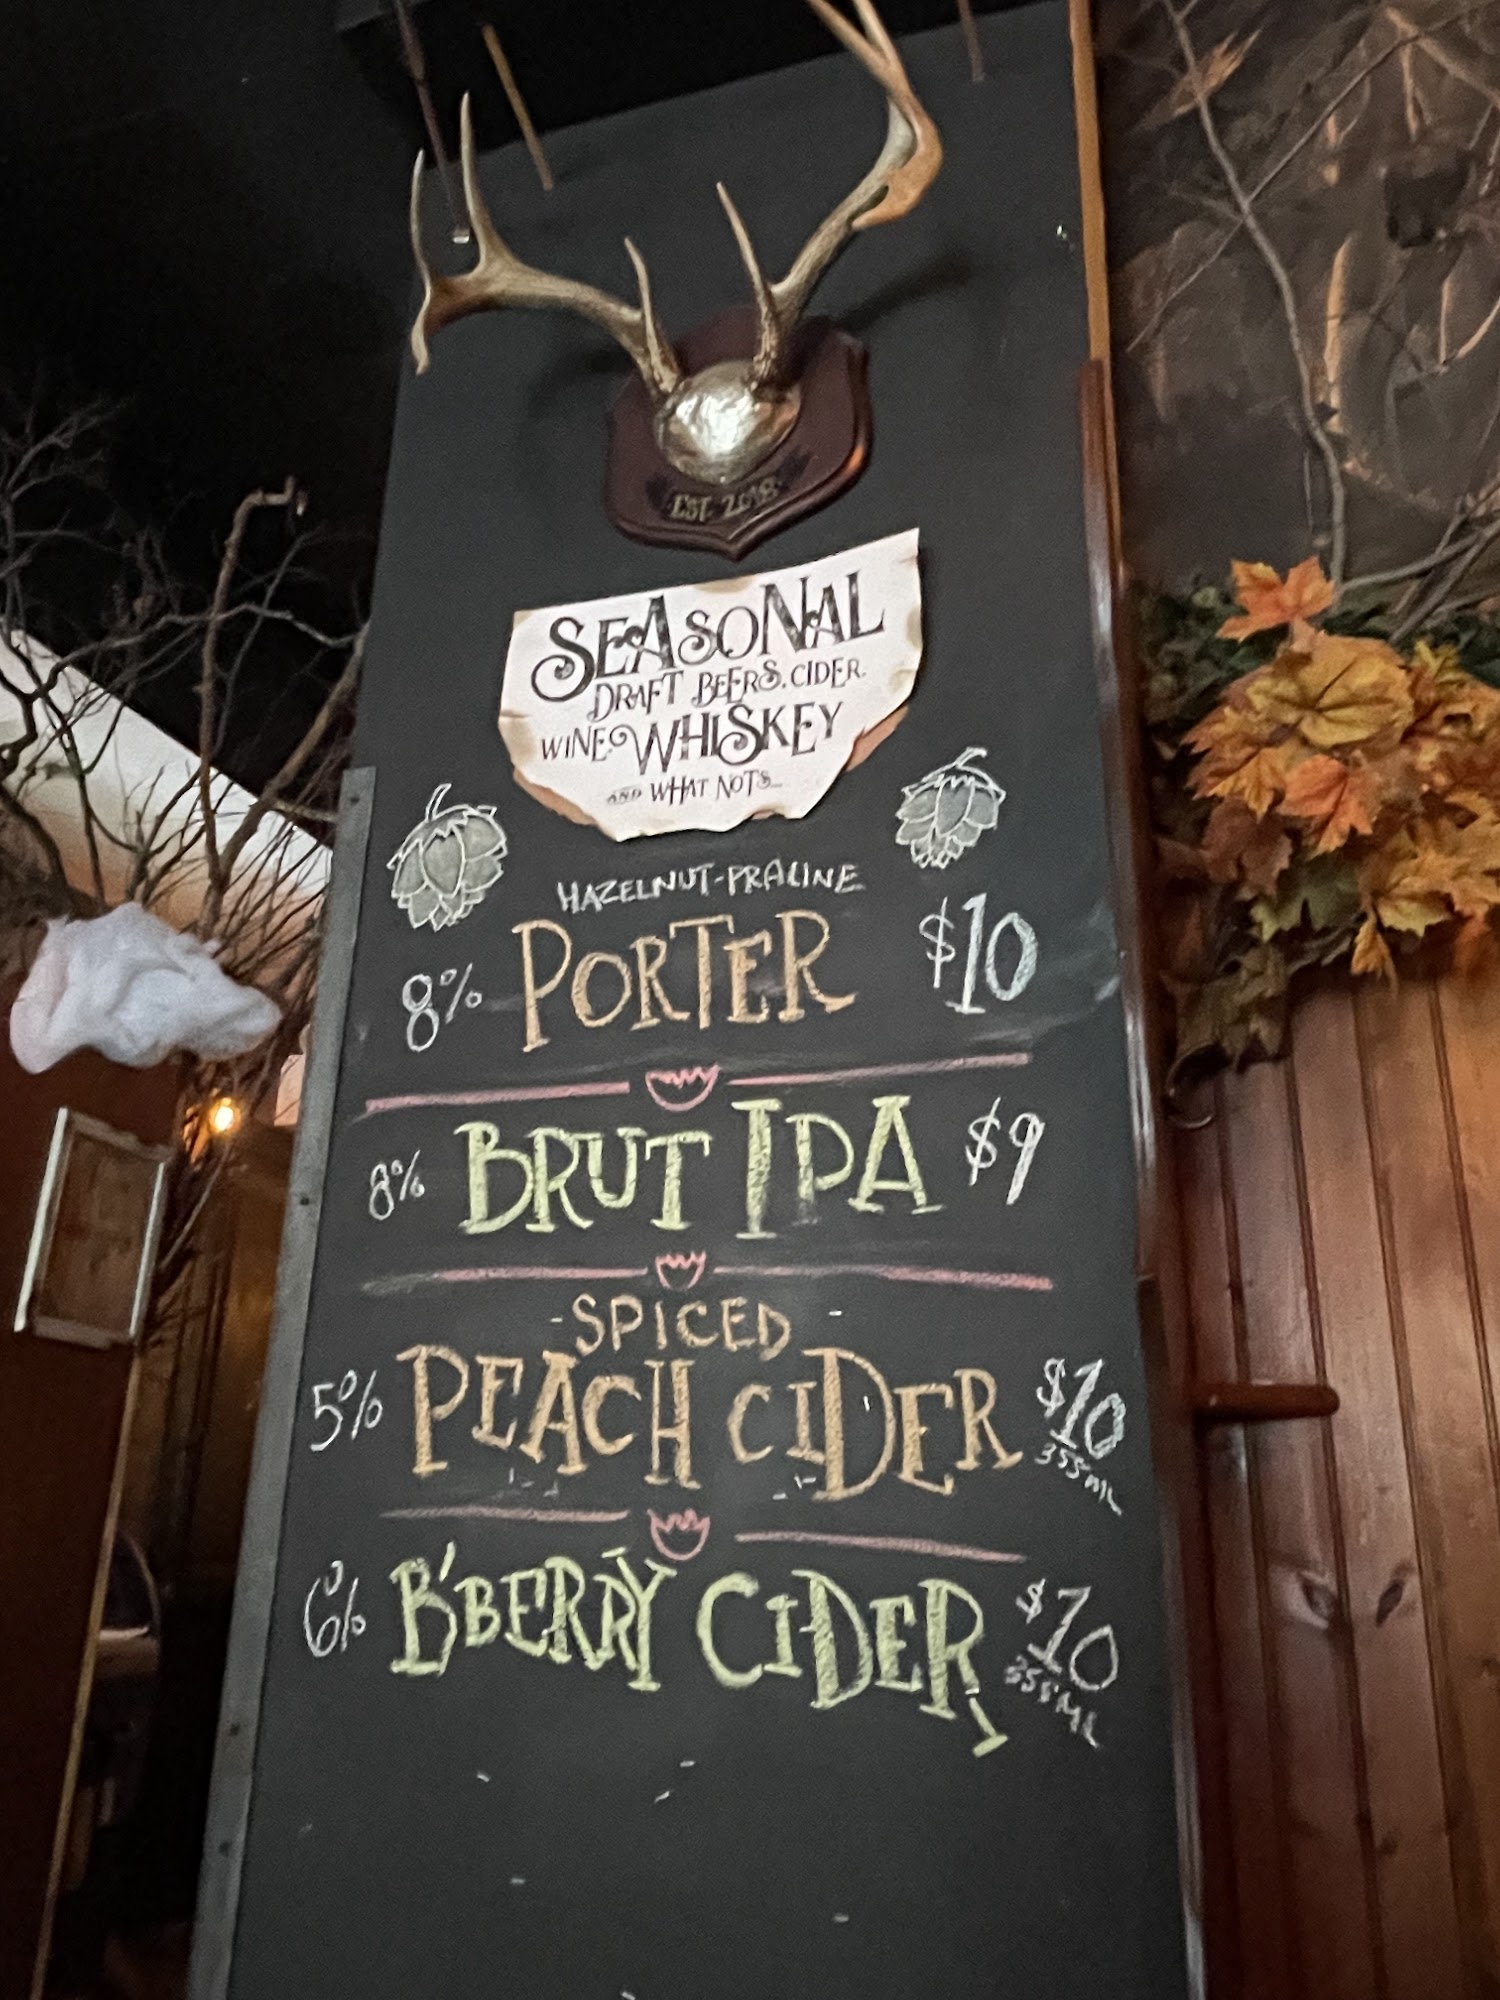 EST. 2018
SEASONAL
DRAFT BEERS, CIDER,
WINE, WHISKEY
AND WHAT NOTS...
HAZELNUT-PRALINE
8% PORTER $10
8% BRUT IPA $9
-SPICED-
5% PEACH CIDER $10
355ML
6% B'BERRY CIDER $10
355ML